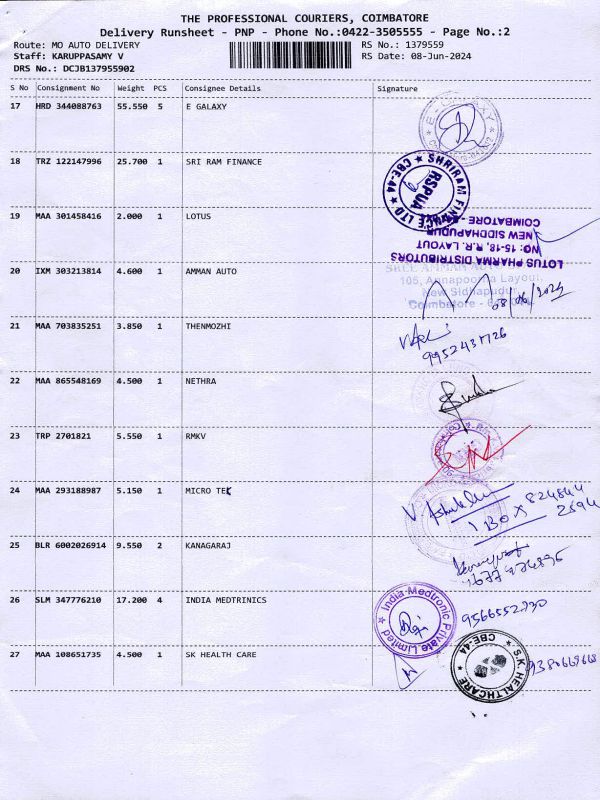 THE PROFESSIONAL COURIERS, COIMBATORE
Delivery Runsheet - PNP - Phone No.:0422-3505555 - Page No.:2
Route: MO AUTO DELIVERY
RS No.: 1379559
Staff: KARUPPASAMY V
RS Date: 08-Jun-2024
DRS No.: DCJB137955902
S No Consignment No Weight PCS Consignee Details Signature
17 HRD 344088763 55.550 5 E GALAXY
E - GALAXY
18 TRZ 122147996 25.700 1 SRI RAM FINANCE
SHRIRAM FINANCE LTD
CBE-44
RSPUA
19 MAA 301458416 2.000 1 LOTUS
LOTUS PHARMA DISTRIBUTORS
NO: 15-18, R.R. LAYOUT
NEW SIDDHAPUDUR
COIMBATORE -
20 IXM 303213814 4.600 1 AMMAN AUTO
SREE AMMAN
105, Annapoorna Layout,
New Sidhapudur
Coimbatore -
08/06/2024
21 MAA 703835251 3.850 1 THENMOZHI
22 MAA 865548169 4.500 1 NETHRA
23 TRP 2701821 5.550 1 RMKV
24 MAA 293188987 5.150 1 MICRO TEK
1 BOX
25 BLR 6002026914 9.550 2 KANAGARAJ
26 SLM 347776210 17.200 4 INDIA MEDTRINICS
India Medtronic Private Limited
27 MAA 108651735 4.500 1 SK HEALTH CARE
S.K HEALTHCARE
CBE-44